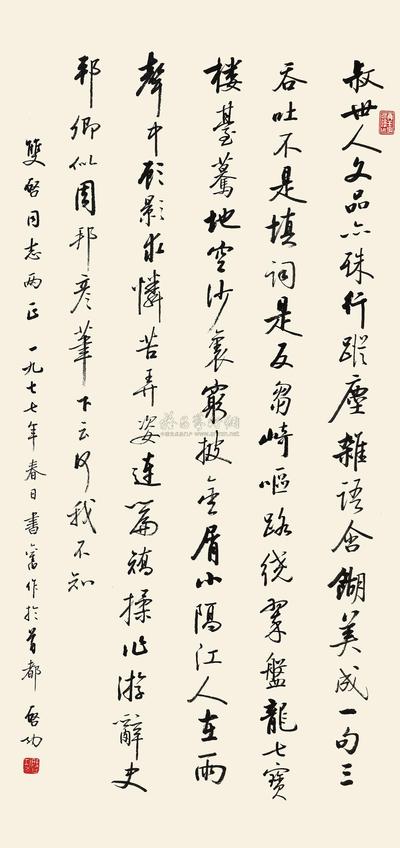 叔世人文品亦殊行蹤塵雜語含餬美成一句三
吞吐不是填詞是反芻崎嶇路繞翠盤龍七寶
樓臺驀地空沙裏窮披金屑小隔江人在雨
聲中顧影求憐苦弄姿連篇矯揉作游辭史
邦卿似周邦彥筆下云何我不知
雙啓同志兩正 一九七七年春日書舊作於首都 啓功